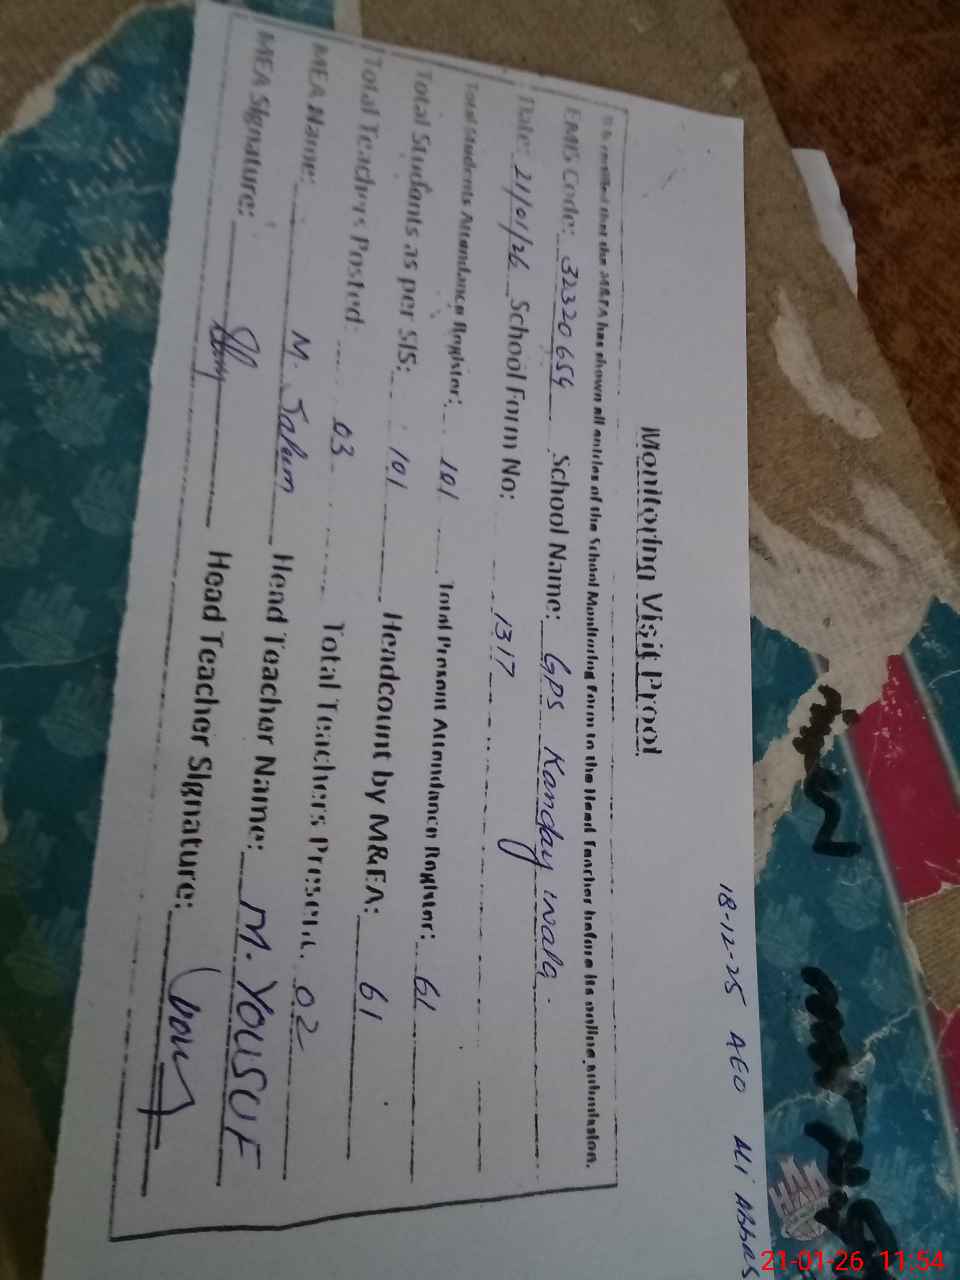 18-12-25 AEO Ali Abbas
Monitoring Visit Proof
It is certified that the M&EA has shown all entries of the School Monitoring Form to the Head Teacher before its online submission.
EMIS Code: 32320654 School Name: GPS Kanday wala.
Date: 21/01/26 School Form No: 1317
Total Students Attendance Register: 101 Total Present Attendance Register: 61
Total Students as per SIS: 101 Headcount by M&EA: 61
Total Teachers Posted: 03 Total Teachers Present: 02
MEA Name: M. Salum Head Teacher Name: M. YOUSUF
MEA Signature: Head Teacher Signature:
21-01-26 11:54